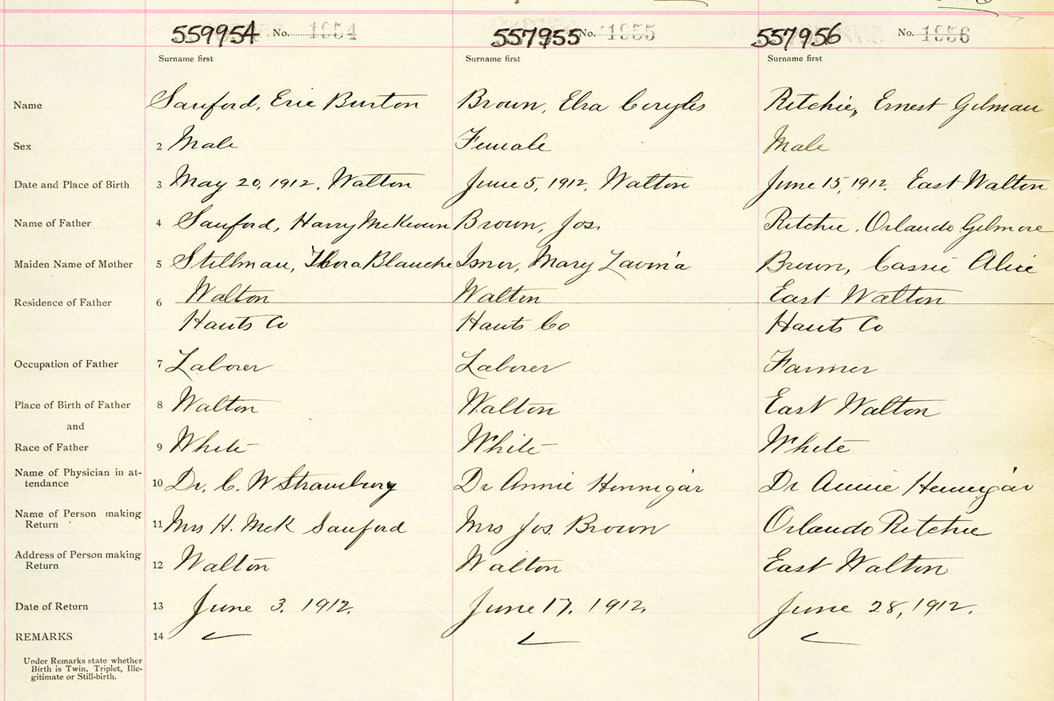 559954 No. 1954 557955 No. 1955 557956 No. 1956
Surname first Surname first Surname first
Name Sanford, Eric Burton Brown, Elra Ritchie, Ernest Gilman
Sex 2 Male Female Male
Date and Place of Birth 3 May 20, 1912. Walton June 5, 1912. Walton June 15, 1912. East Walton
Name of Father 4 Sanford, Harry McKeown Brown, Jos. Ritchie, Orlando Gilmore
Maiden Name of Mother 5 Stillman, Thora Blanche Ismor, Mary Lavinia Brown, Cassie Alice
Residence of Father 6 Walton Walton East Walton
Hants Co Hants Co Hants Co
Occupation of Father 7 Laborer Laborer Farmer
Place of Birth of Father 8 Walton Walton East Walton
and
Race of Father 9 White White White
Name of Physician in at-
tendance 10 Dr. C. W Dr Annie Hennigar Dr Annie Hennigar
Name of Person making
Return 11 Mrs H. McK Sanford Mrs Jos. Brown Orlando Ritchie
Address of Person making
Return 12 Walton Walton East Walton
Date of Return 13 June 3. 1912. June 17. 1912. June 28, 1912.
REMARKS 14
Under Remarks state whether
Birth is Twin, Triplet, Ille-
gitimate or Still-birth.